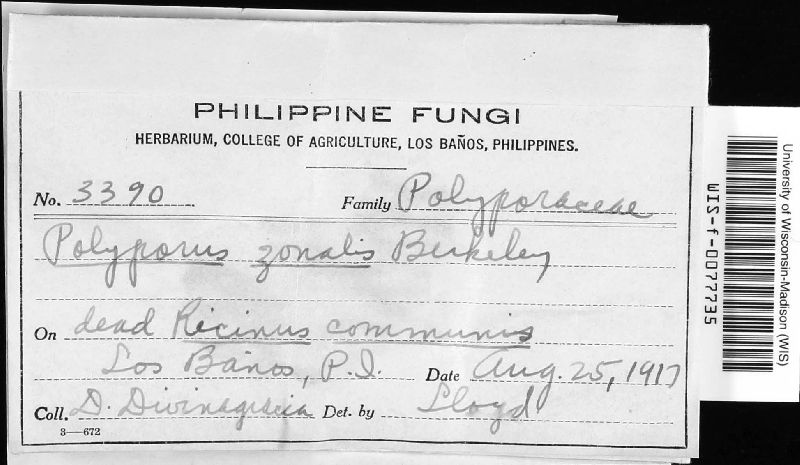 PHILIPPINE FUNGI
HERBARIUM, COLLEGE OF AGRICULTURE, LOS BAÑOS, PHILIPPINES.
No. 3390 Family Polyporaceae
Polyporus zonalis Berkeley
On dead Ricinus communis
Los Baños, P.I. Date Aug. 25, 1917
Coll. D. Divinagracia Det. by Lloyd
3—672
University of Wisconsin-Madison (WIS)
WIS-f-0077735